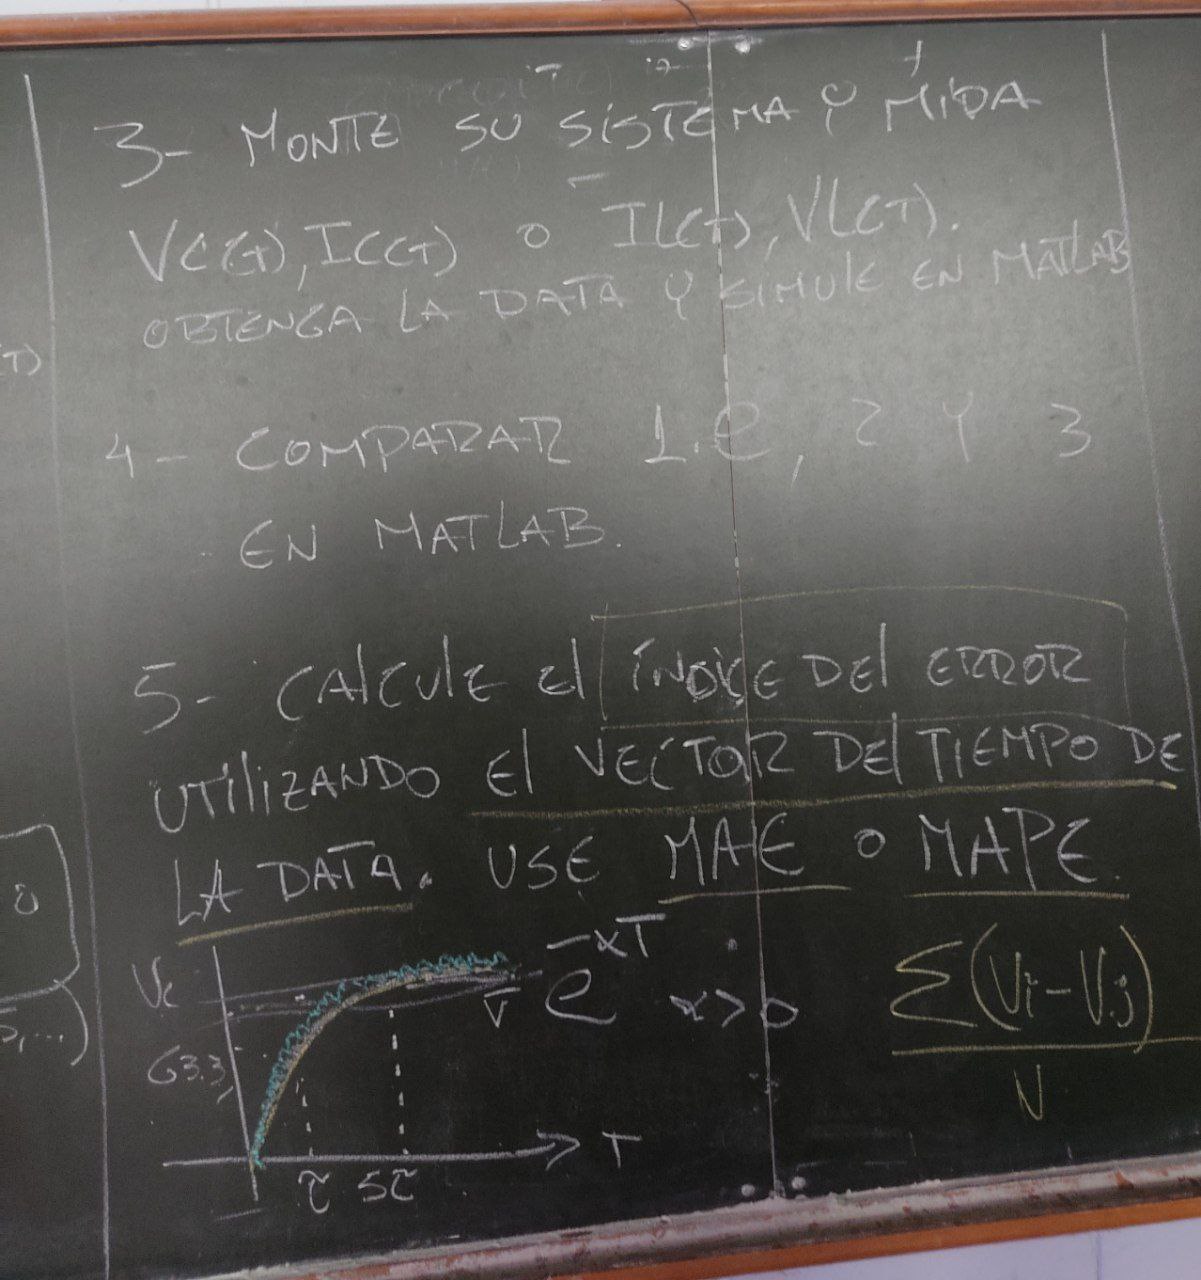 3- MONTE SU SISTEMA Y MIDA
VC(T), IC(T) O IL(T), VL(T).
OBTENGA LA DATA Y SIMULE EN MATLAB
T)
4- COMPARAR 1.e, 2 Y 3
EN MATLAB.
5- CALCULE El ÍNDICE DEl ERROR
UTILIZANDO El VECTOR DEl TIEMPO DE
LA DATA. USE MAE O MAPE.
Vc
e^-αT α>0
Σ(Vi-Vj)
N
V
63.3
, ...)
T
τ 5τ